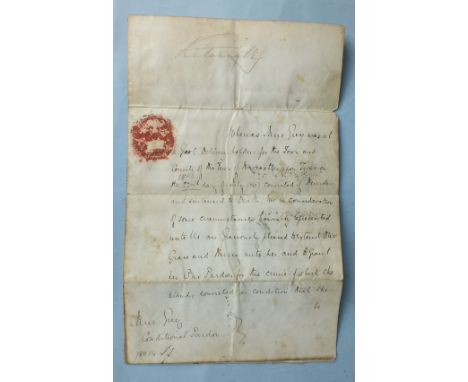 Victoria R
Whereas Jane Grey was at
a Gaol Delivery holden for the Town and
County of the Town of Newcastle upon Tyne on
the day of July convicted of Murder
and sentenced to Death. We in consideration
of some circumstances humbly represented
unto Us are Graciously pleased to extend Our
Grace and Mercy unto her and to grant
her Our Pardon for the crime of which she
stands convicted on condition that she
be
Jane Grey
Conditional Pardon